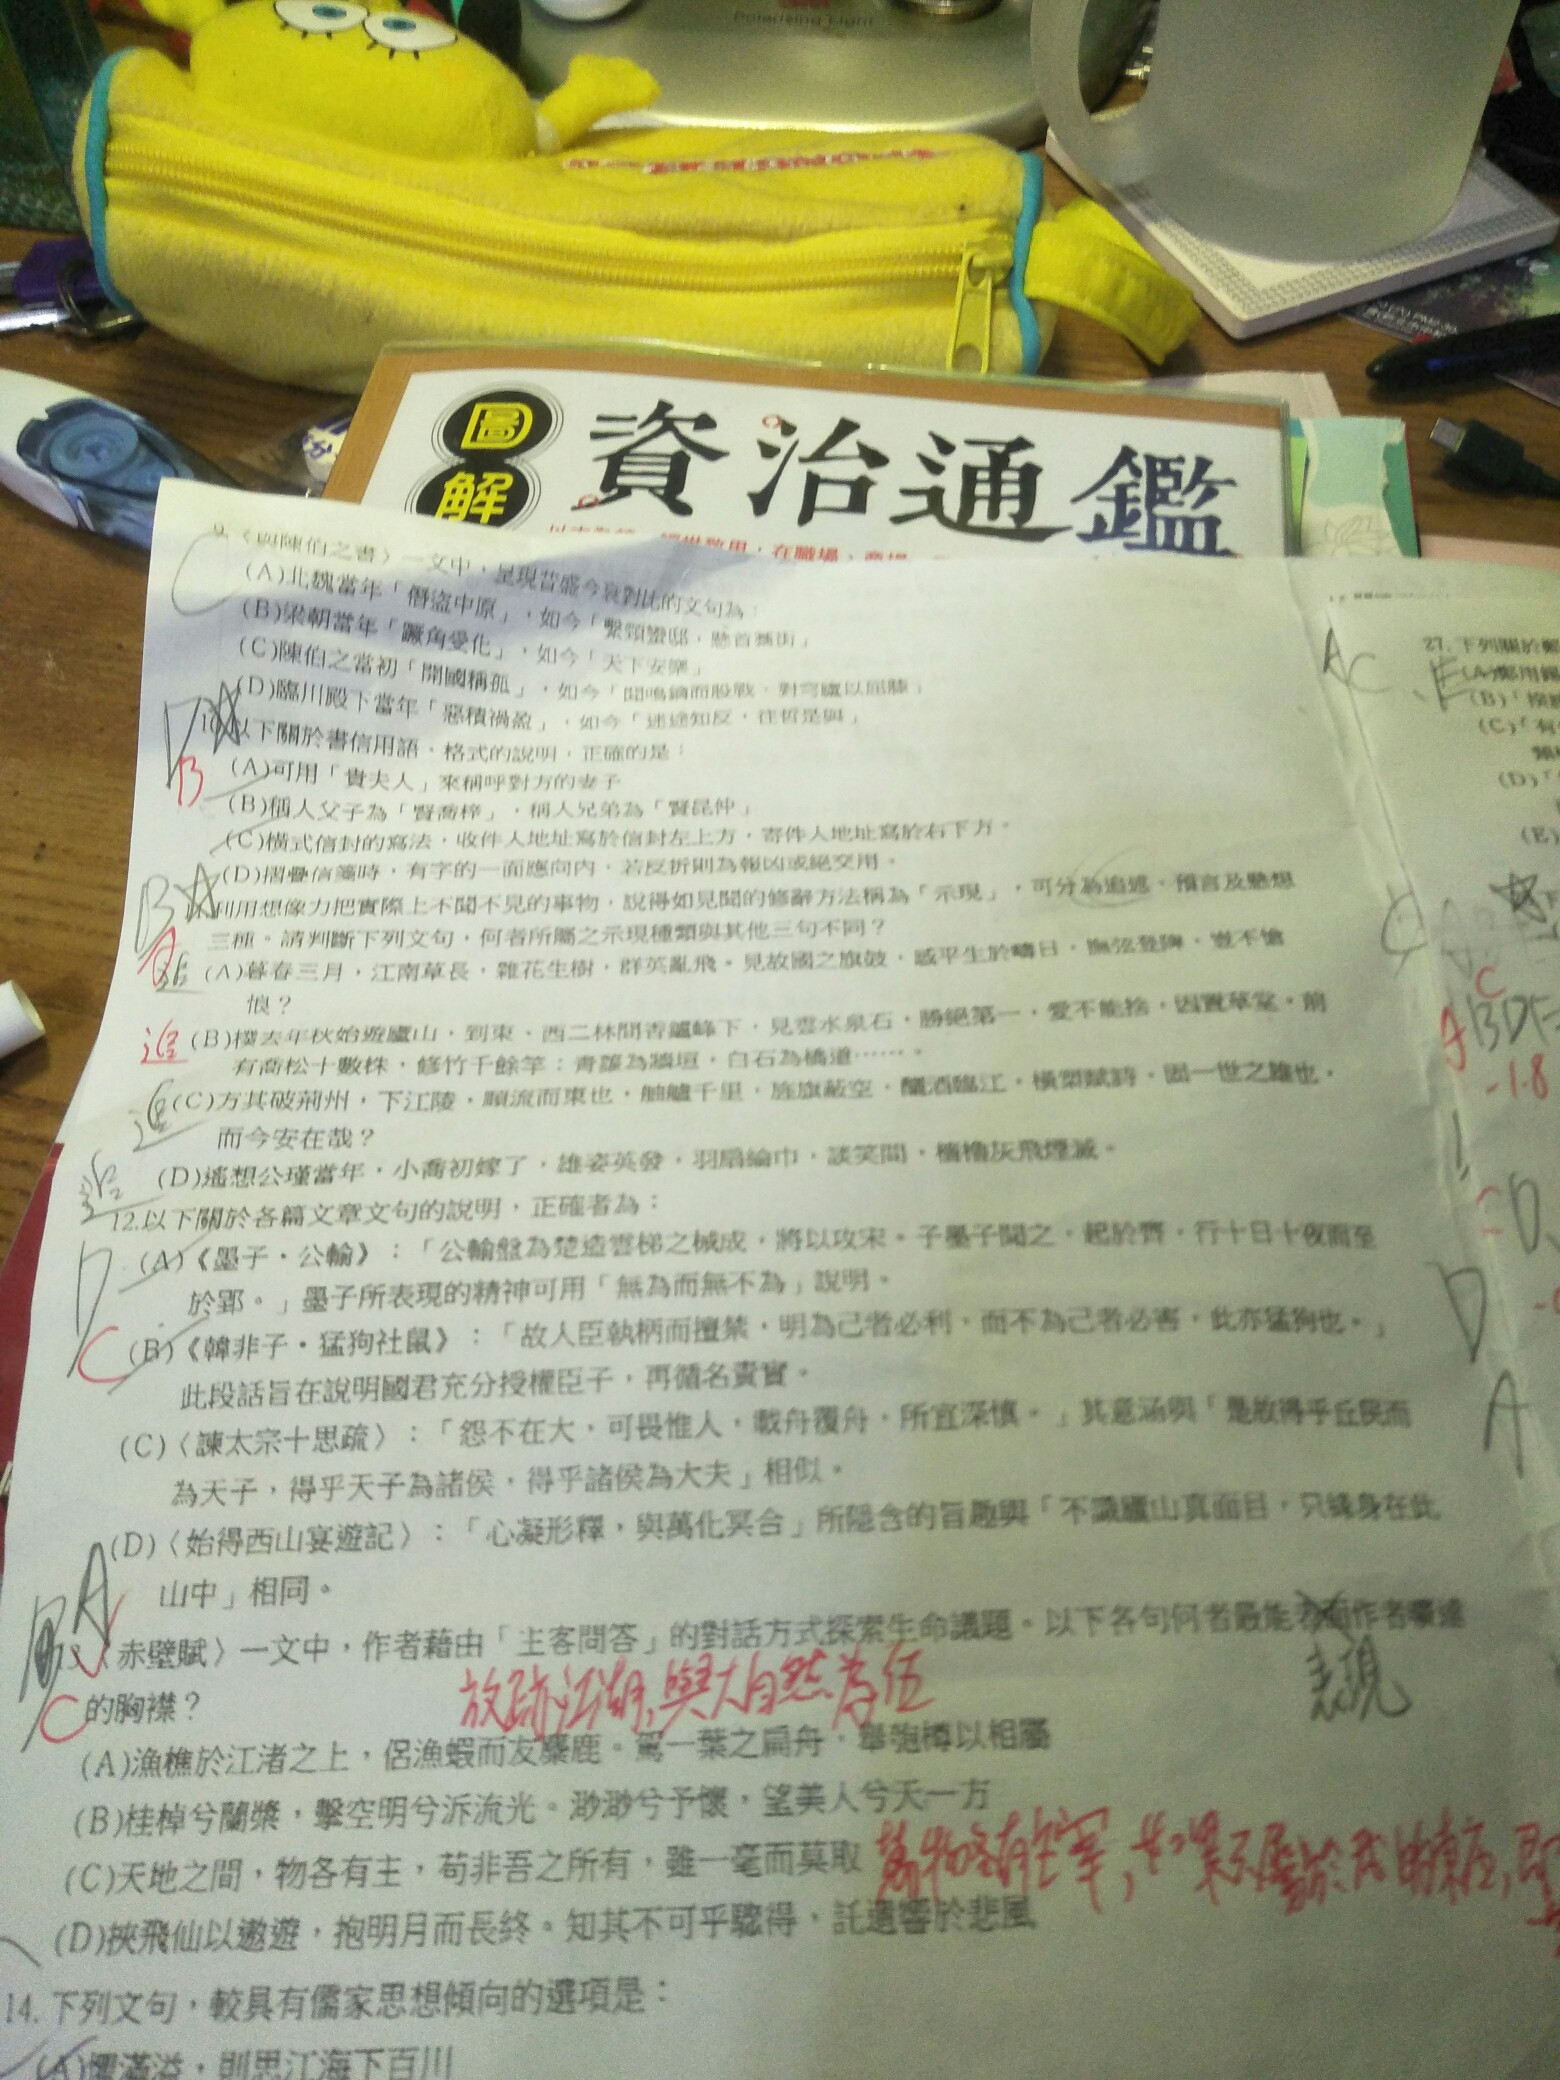 Polarising Light
圖解
資治通鑑
9.〈與陳伯之書〉一文中,呈現昔盛今衰對比的文句為:
(A)北魏當年「僭盜中原」,如今「繫頸蠻邸,懸首藁街」
(B)梁朝當年「蹶角受化」,如今「天下安樂」
(C)陳伯之當初「開國稱孤」,如今「聞鳴鏑而股戰,對穹廬以屈膝」
(D)臨川殿下當年「惡積禍盈」,如今「迷途知反,往哲是與」
10.以下關於書信用語、格式的說明,正確的是:
B
(A)可用「貴夫人」來稱呼對方的妻子
(B)稱人父子為「賢喬梓」,稱人兄弟為「賢昆仲」
(C)橫式信封的寫法,收件人地址寫於信封左上方,寄件人地址寫於右下方。
(D)摺疊信箋時,有字的一面應向內,若反折則為報凶或絕交用。
B
利用想像力把實際上不聞不見的事物,說得如見聞的修辭方法稱為「示現」,可分為追述、預言及懸想
三種。請判斷下列文句,何者所屬之示現種類與其他三句不同?
(A)暮春三月,江南草長,雜花生樹,群英亂飛。見故國之旗鼓,感平生於疇日,撫弦登陴,豈不愴
悢?
追
(B)檏去年秋始遊廬山,到東、西二林間香鑪峰下,見雲水泉石,勝絕第一,愛不能捨,因置草堂。前
有喬松十數株,修竹千餘竿;青蘿為牆垣,白石為橋道……。
追
(C)方其破荊州,下江陵,順流而東也,舳艫千里,旌旗蔽空,釃酒臨江,橫槊賦詩,固一世之雄也,
而今安在哉?
追
(D)遙想公瑾當年,小喬初嫁了,雄姿英發,羽扇綸巾,談笑間,檣櫓灰飛煙滅。
12.以下關於各篇文章文句的說明,正確者為:
D
C
(A)《墨子・公輸》:「公輸盤為楚造雲梯之械成,將以攻宋。子墨子聞之,起於齊,行十日十夜而至
於郢。」墨子所表現的精神可用「無為而無不為」說明。
(B)《韓非子・猛狗社鼠》:「故人臣執柄而擅禁,明為己者必利,而不為己者必害,此亦猛狗也。」
此段話旨在說明國君充分授權臣子,再循名責實。
(C)〈諫太宗十思疏〉:「怨不在大,可畏惟人,載舟覆舟,所宜深慎。」其意涵與「是故得乎丘民而
為天子,得乎天子為諸侯,得乎諸侯為大夫」相似。
(D)〈始得西山宴遊記〉:「心凝形釋,與萬化冥合」所隱含的旨趣與「不識廬山真面目,只緣身在此
山中」相同。
A
〈赤壁賦〉一文中,作者藉由「主客問答」的對話方式探索生命議題。以下各句何者最能表面作者曠達
表現
C
的胸襟?
放跡江湖,與大自然為伍
(A)漁樵於江渚之上,侶漁蝦而友麋鹿。駕一葉之扁舟,舉匏樽以相屬
(B)桂棹兮蘭槳,擊空明兮泝流光。渺渺兮予懷,望美人兮天一方
(C)天地之間,物各有主,苟非吾之所有,雖一毫而莫取
萬物各有主宰,如果不屬於我的東西,即
(D)挾飛仙以遨遊,抱明月而長終。知其不可乎驟得,託遺響於悲風
14.下列文句,較具有儒家思想傾向的選項是:
(A)懼滿溢,則思江海下百川
AC
E
27.下列關於
(B)「
(C)「有
(D)「
(E)
C
BDE
-1.8
D
D
A